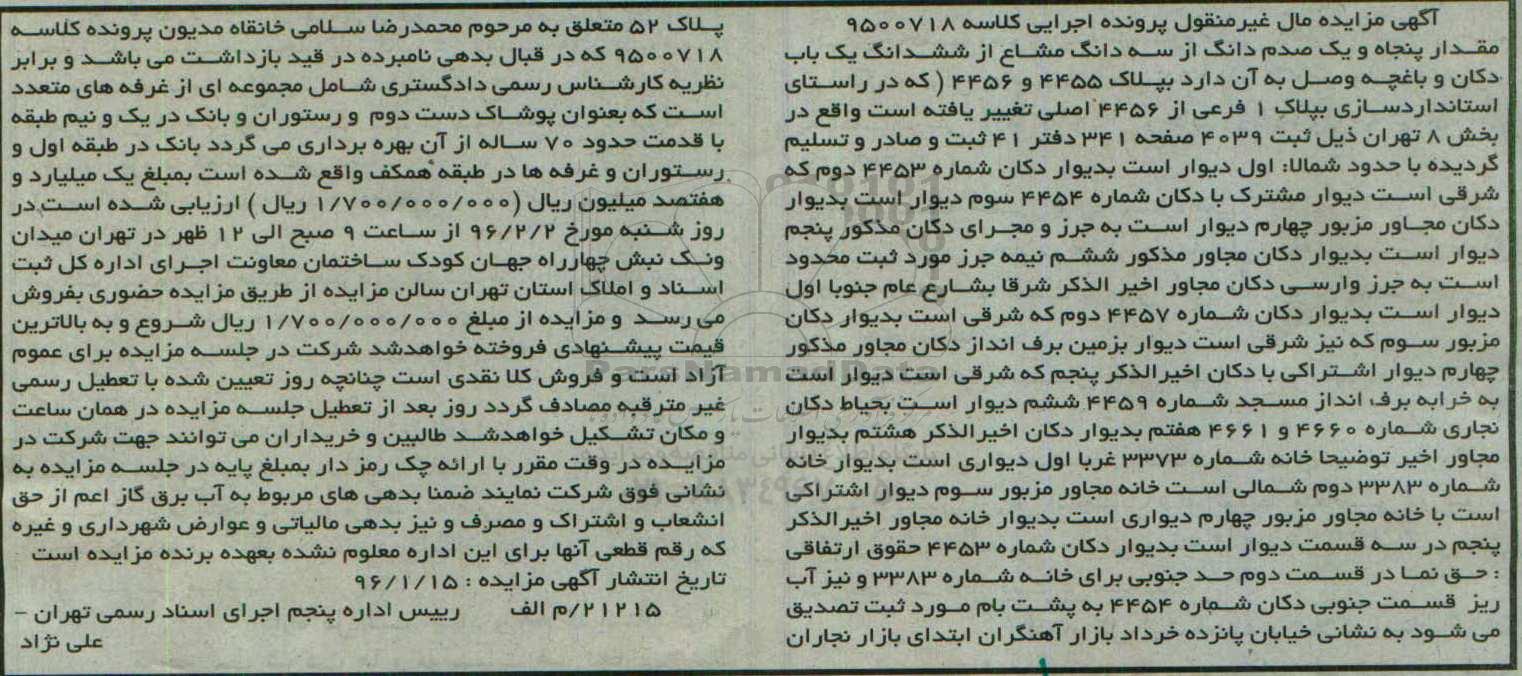 آگهی مزایده مال غیرمنقول پرونده اجرایی کلاسه ۹۵۰۰۷۱۸
مقدار پنجاه و یک صدم دانگ از سه دانگ مشاع از ششدانگ یک باب
دکان و باغچه وصل به آن دارد بپلاک ۴۴۵۵ و ۴۴۵۶ ( که در راستای
استانداردسازی بپلاک ۱ فرعی از ۴۴۵۶ اصلی تغییر یافته است واقع در
بخش ۸ تهران ذیل ثبت ۴۰۳۹ صفحه ۳۴۱ دفتر ۴۱ ثبت و صادر و تسلیم
گردیده با حدود شمالا: اول دیوار است بدیوار دکان شماره ۴۴۵۳ دوم که
شرقی است دیوار مشترک با دکان شماره ۴۴۵۴ سوم دیوار است بدیوار
دکان مجاور مزبور چهارم دیوار است به جرز و مجرای دکان مذکور پنجم
دیوار است بدیوار دکان مجاور مذکور ششم نیمه جرز مورد ثبت محدود
است به جرز وارسی دکان مجاور اخیر الذکر شرقا بشارع عام جنوبا اول
دیوار است بدیوار دکان شماره ۴۴۵۷ دوم که شرقی است بدیوار دکان
مزبور سوم که نیز شرقی است دیوار بزمین برف انداز دکان مجاور مذکور
چهارم دیوار اشتراکی با دکان اخیرالذکر پنجم که شرقی است دیوار است
به خرابه برف انداز مسجد شماره ۴۴۵۹ ششم دیوار است بحیاط دکان
نجاری شماره ۴۶۶۰ و ۴۶۶۱ هفتم بدیوار دکان اخیرالذکر هشتم بدیوار
مجاور اخیر توضیحا خانه شماره ۳۳۷۳ غربا اول دیواری است بدیوار خانه
شماره ۳۳۸۳ دوم شمالی است خانه مجاور مزبور سوم دیوار اشتراکی
است با خانه مجاور مزبور چهارم دیواری است بدیوار خانه مجاور اخیرالذکر
پنجم در سه قسمت دیوار است بدیوار دکان شماره ۴۴۵۳ حقوق ارتفاقی
: حق نما در قسمت دوم حد جنوبی برای خانه شماره ۳۳۸۳ و نیز آب
ریز قسمت جنوبی دکان شماره ۴۴۵۴ به پشت بام مورد ثبت تصدیق
می شود به نشانی خیابان پانزده خرداد بازار آهنگران ابتدای بازار نجاران
پلاک ۵۲ متعلق به مرحوم محمدرضا سلامی خانقاه مدیون پرونده کلاسه
۹۵۰۰۷۱۸ که در قبال بدهی نامبرده در قید بازداشت می باشد و برابر
نظریه کارشناس رسمی دادگستری شامل مجموعه ای از غرفه های متعدد
است که بعنوان پوشاک دست دوم و رستوران و بانک در یک و نیم طبقه
با قدمت حدود ۷۰ ساله از آن بهره برداری می گردد بانک در طبقه اول و
رستوران و غرفه ها در طبقه همکف واقع شده است بمبلغ یک میلیارد و
هفتصد میلیون ریال (۱/۷۰۰/۰۰۰/۰۰۰ ریال ) ارزیابی شده است در
روز شنبه مورخ ۹۶/۲/۲ از ساعت ۹ صبح الی ۱۲ ظهر در تهران میدان
ونک نبش چهارراه جهان کودک ساختمان معاونت اجرای اداره کل ثبت
اسناد و املاک استان تهران سالن مزایده از طریق مزایده حضوری بفروش
می رسد و مزایده از مبلغ ۱/۷۰۰/۰۰۰/۰۰۰ ریال شروع و به بالاترین
قیمت پیشنهادی فروخته خواهدشد شرکت در جلسه مزایده برای عموم
آزاد است و فروش کلا نقدی است چنانچه روز تعیین شده با تعطیل رسمی
غیر مترقبه مصادف گردد روز بعد از تعطیل جلسه مزایده در همان ساعت
و مکان تشکیل خواهدشد طالبین و خریداران می توانند جهت شرکت در
مزایده در وقت مقرر با ارائه چک رمز دار بمبلغ پایه در جلسه مزایده به
نشانی فوق شرکت نمایند ضمنا بدهی های مربوط به آب برق گاز اعم از حق
انشعاب و اشتراک و مصرف و نیز بدهی مالیاتی و عوارض شهرداری و غیره
که رقم قطعی آنها برای این اداره معلوم نشده بعهده برنده مزایده است
تاریخ انتشار آگهی مزایده : ۹۶/۱/۱۵
۲۱۲۱۵/م الف رییس اداره پنجم اجرای اسناد رسمی تهران –
علی نژاد
ParsNamadData